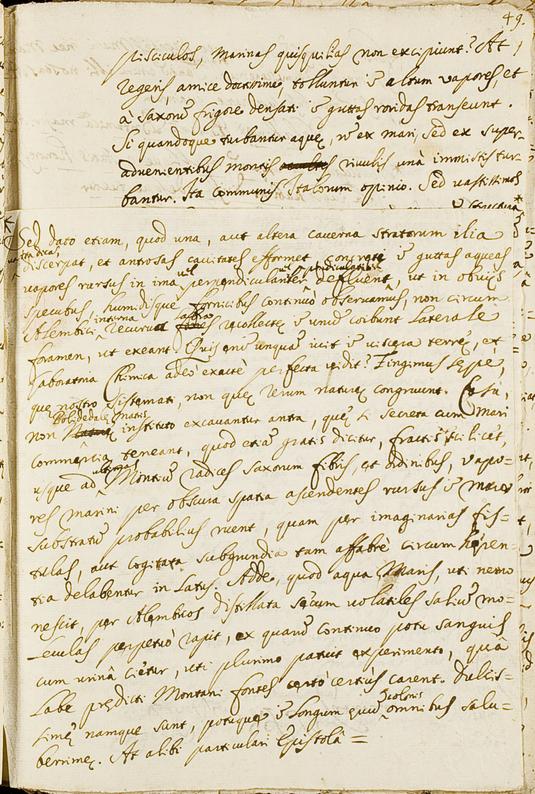 49.
pisciculos, marinas quisquilias non excipiunt? At
Regeris, amice doctissime, tolluntur in altum vapores, et
a saxorum frigore densati in guttas roridas transeunt.
Si quandoque turbantur aquę, non ex mari, sed ex super
advenientibus montis rivulis unà immistis tur
bantur. Ita communis Italorum opinio. Sed vastissimos
Sed dato etiam, quod una, aut altera caverna stratorum ilia
discerpat, et antrosas cavitates efformet, in guttas aqueas
vapores rursus in ima vel perpendiculariter defluent, ut in obvijs
specubus, humidisque fornicibus continuò observamus, non circum
Alembici interna recurva labra recollectę in unum coibunt laterale
foramen, ut exeant. Quis enim unquam ivit in viscera terrę, et
labratma Chimica adeò exactè perfecta vidit? Fingimus sępe,
quę nostro sistemati, non quę rerum naturę congruunt. Casu,
non instituto excavantur antra, quę si secreta cum mari
commertia teneant, quod etiam gratis dicitur, fractis licèt,
usque ad Montium radices saxorum fibris, et ordinibus, vapo-
res marini per obscura spatia ascendentes rursus in mare
substratum probabilius ruent, quam per imaginarias fis-
tulas, aut cogitata subgrundia tam affabrè circum
tia delabentur in Latus. Adde, quod aqua Maris, uti nemo
nescit, per Alembicos distillata sęcum volatiles salium mo-
leculas perpetuò rapit, ex quarum continuo potu sanguis
cum urinâ cietur, uti plurimo patuit experimento, quâ
Labe prędicti Montani fontes certò certius carent. Dulcis-
simę namque sunt, potuque in longum incolis omnibus salu-
berrimę. At alibi particulari Epistolâ =